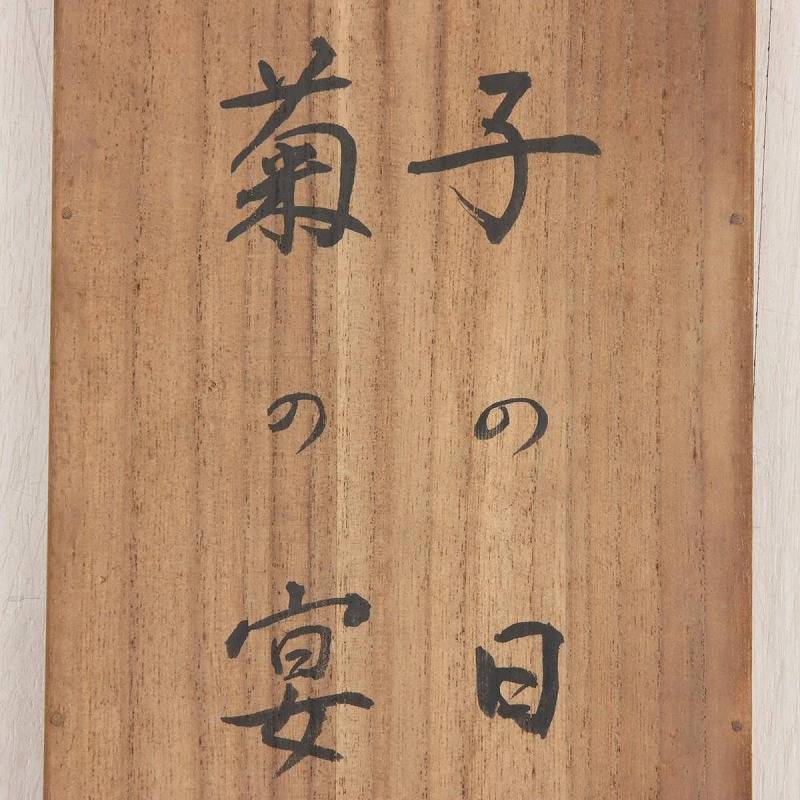 子の日
菊の宴